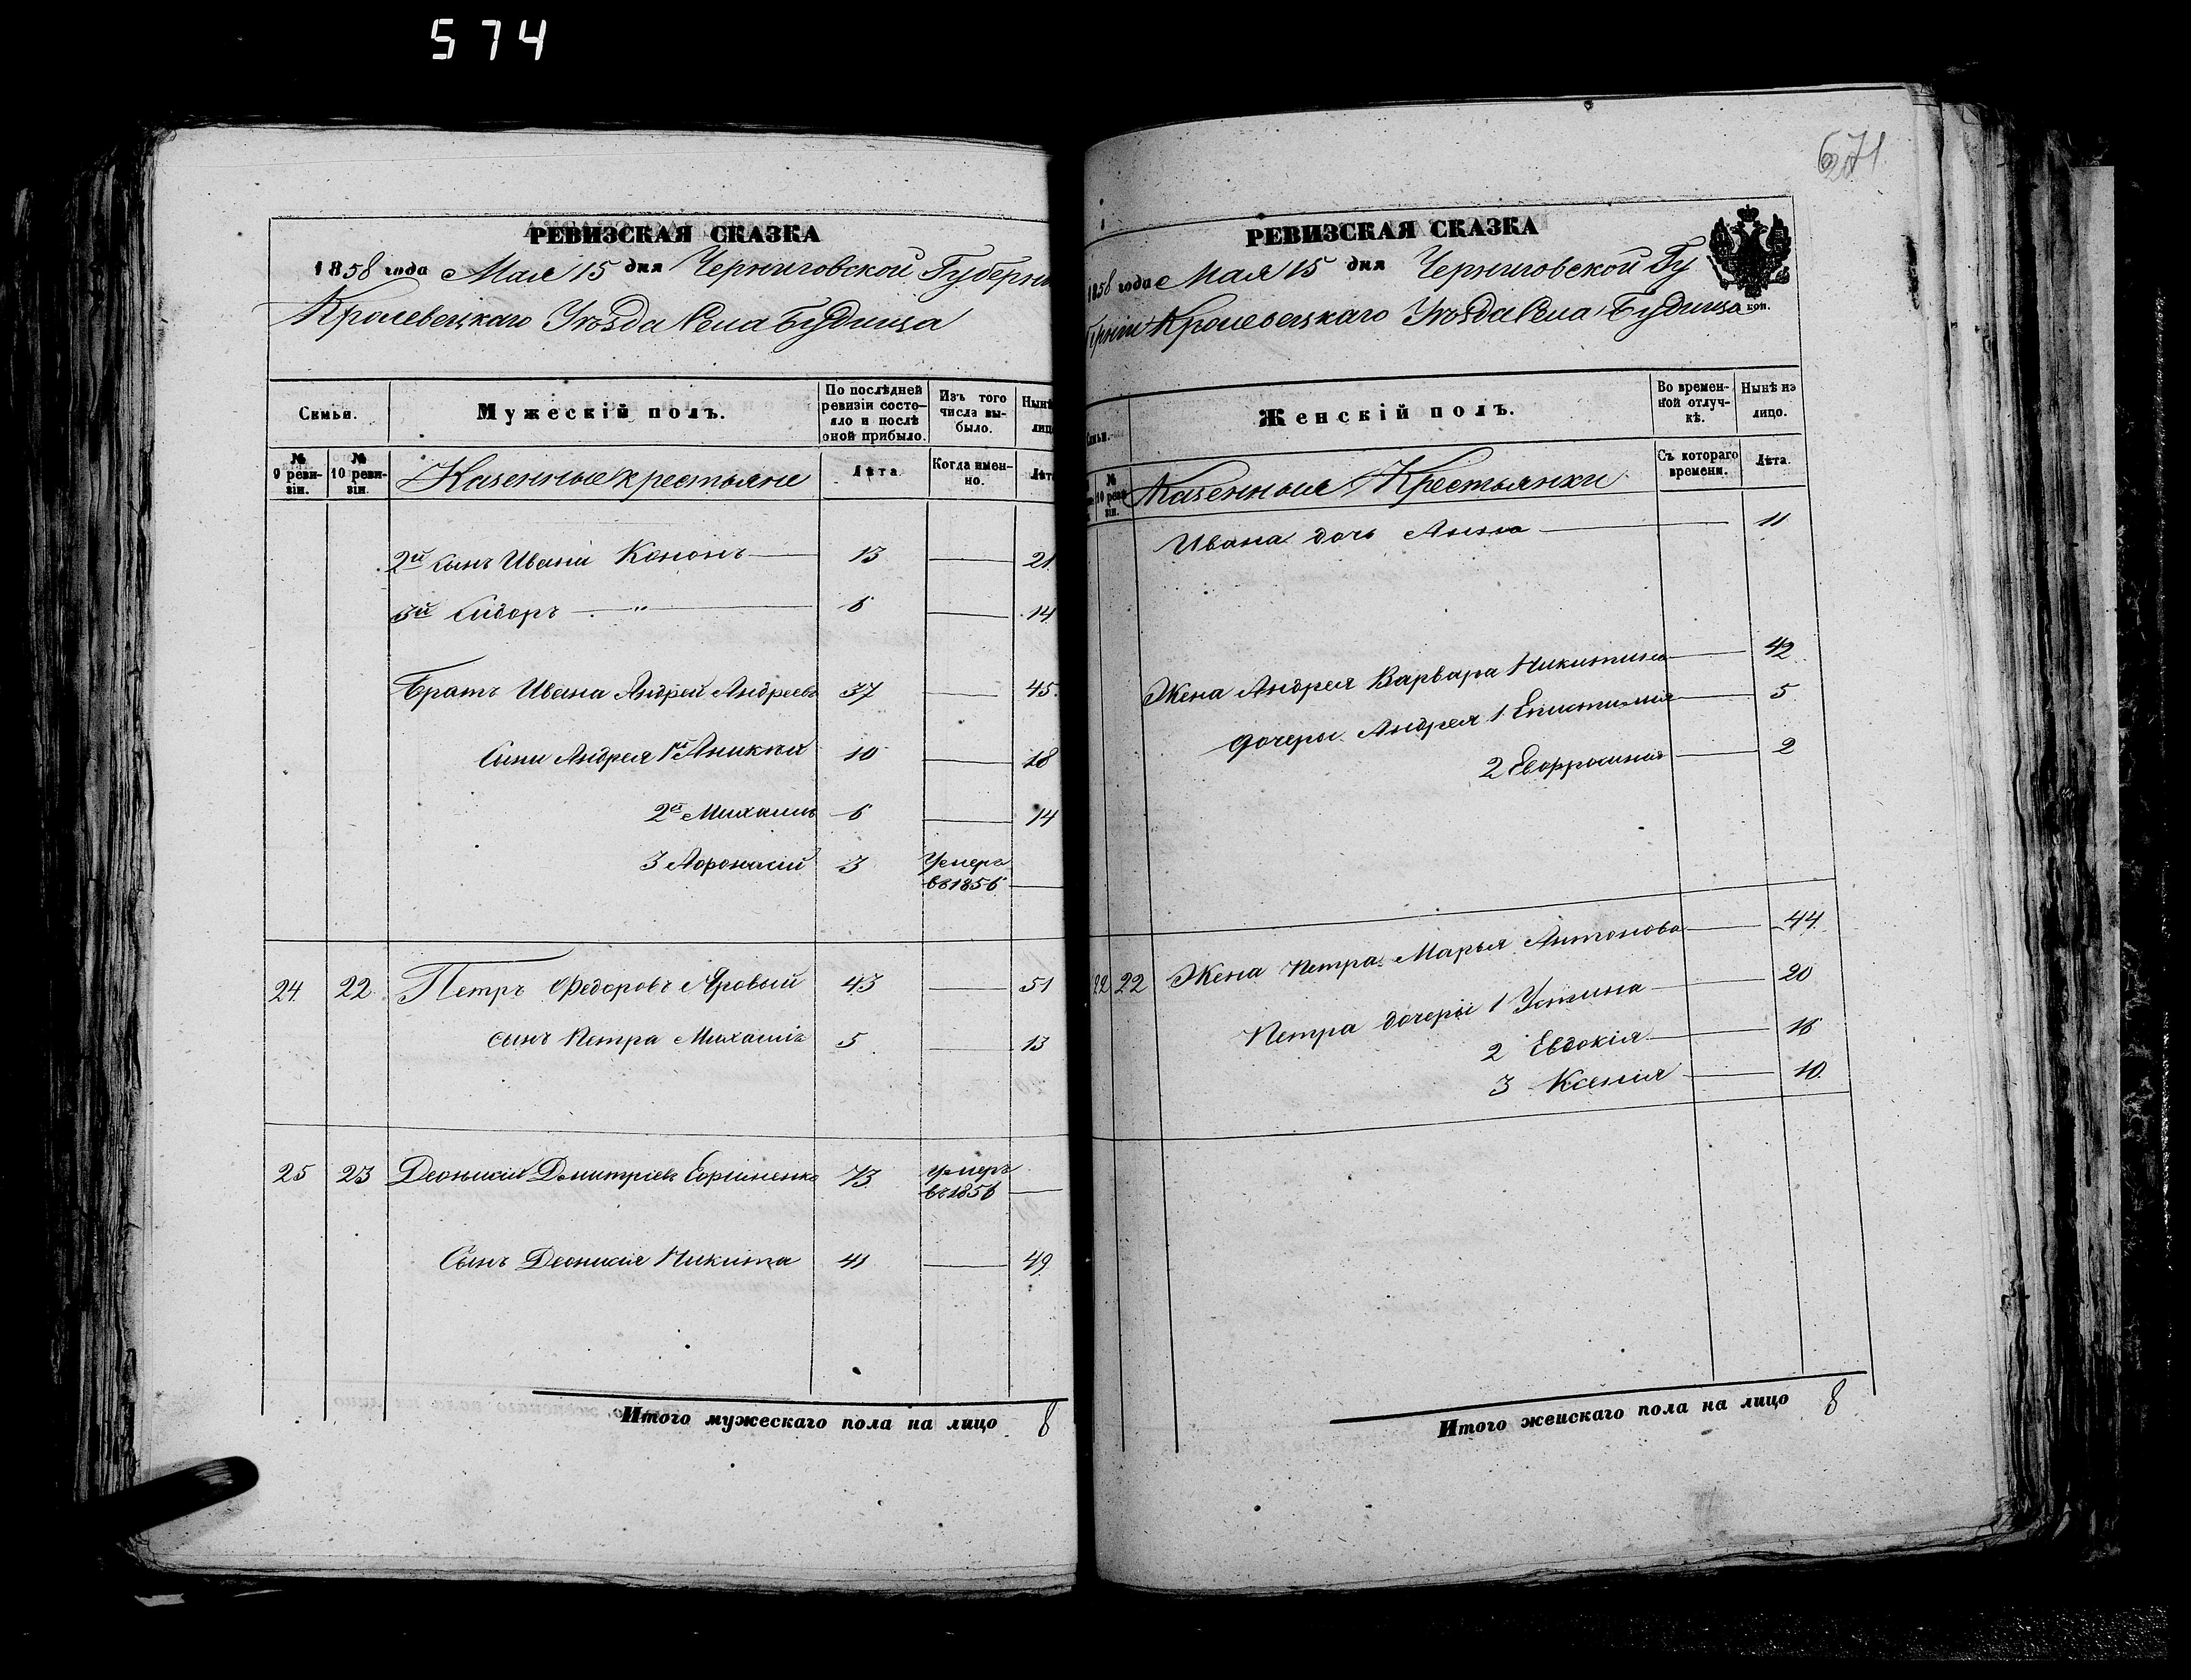 574
РЕВИЗСКАЯ СКАЗКА
1858 года Мая 15 дня Черниговской Губерни
Кролевецкаго Уѣзда Села Будища
Семьи.
Мужескій полъ.
По послѣдней ревизіи состо-
яло и послѣ оной прибыло.
Изъ того числа вы-
было.
Нынѣ
лиц
№ 9 реви-
зіи.
№ 10 реви-
зіи.
Казенные крестьяне
Лѣта.
Когда имен-
но.
Лѣта
2й сынъ Ивана Кононъ 13 21
3й Сидоръ " 6 14
Братъ Ивана Андрей Андреевъ 37 45.
Сыни Андрея 1й Аникій 10 18
2й Михаилъ 6 14
3 Афонасій 3 Умеръ
въ 1856
24 22 Петръ Федоровъ Яровый 43 51
сынъ Петра Михаилъ 5 13
25 23 Деонисій Дмитріевъ 73 умеръ
въ 1856
Сынъ Деонисія Никита 41 49
Итого мужескаго пола на лицо 8
671
РЕВИЗСКАЯ СКАЗКА
1858 года Мая 15 дня Черниговской Гу
берніи Кролевецкаго Уѣзда Села Будища
коп.
Семьи.
Женскій полъ.
Во времен-
ной отлуч-
кѣ.
Нынѣ на
лицо.
№ 10 реви-
зіи.
Казенныя Крестьянки
Съ котораго
времени.
Лѣта.
Ивана дочь Анна 11
Жена Андрея Варвара Никитина 42
дочеры Андрея 1 Епистимія 5
2 Евфросинія 2
22 22 Жена Петра Марья Антонова 44
Петра дочеры 1 Устина 20
2 Евдокія 16
3 Ксенія 10
Итого женскаго пола на лицо 8